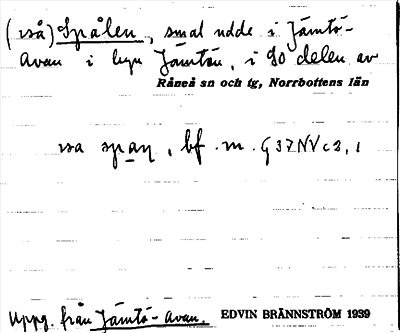 (vså) Spålen, smal udde i Jämtö-
avan i byn Jämtön, i SO delen av
Råneå sn och tg, Norrbottens län
vsa span, bf. m. G 37 NV c 3, 1
Uppg. från Jämtö-avan. EDVIN BRÄNNSTRÖM 1939